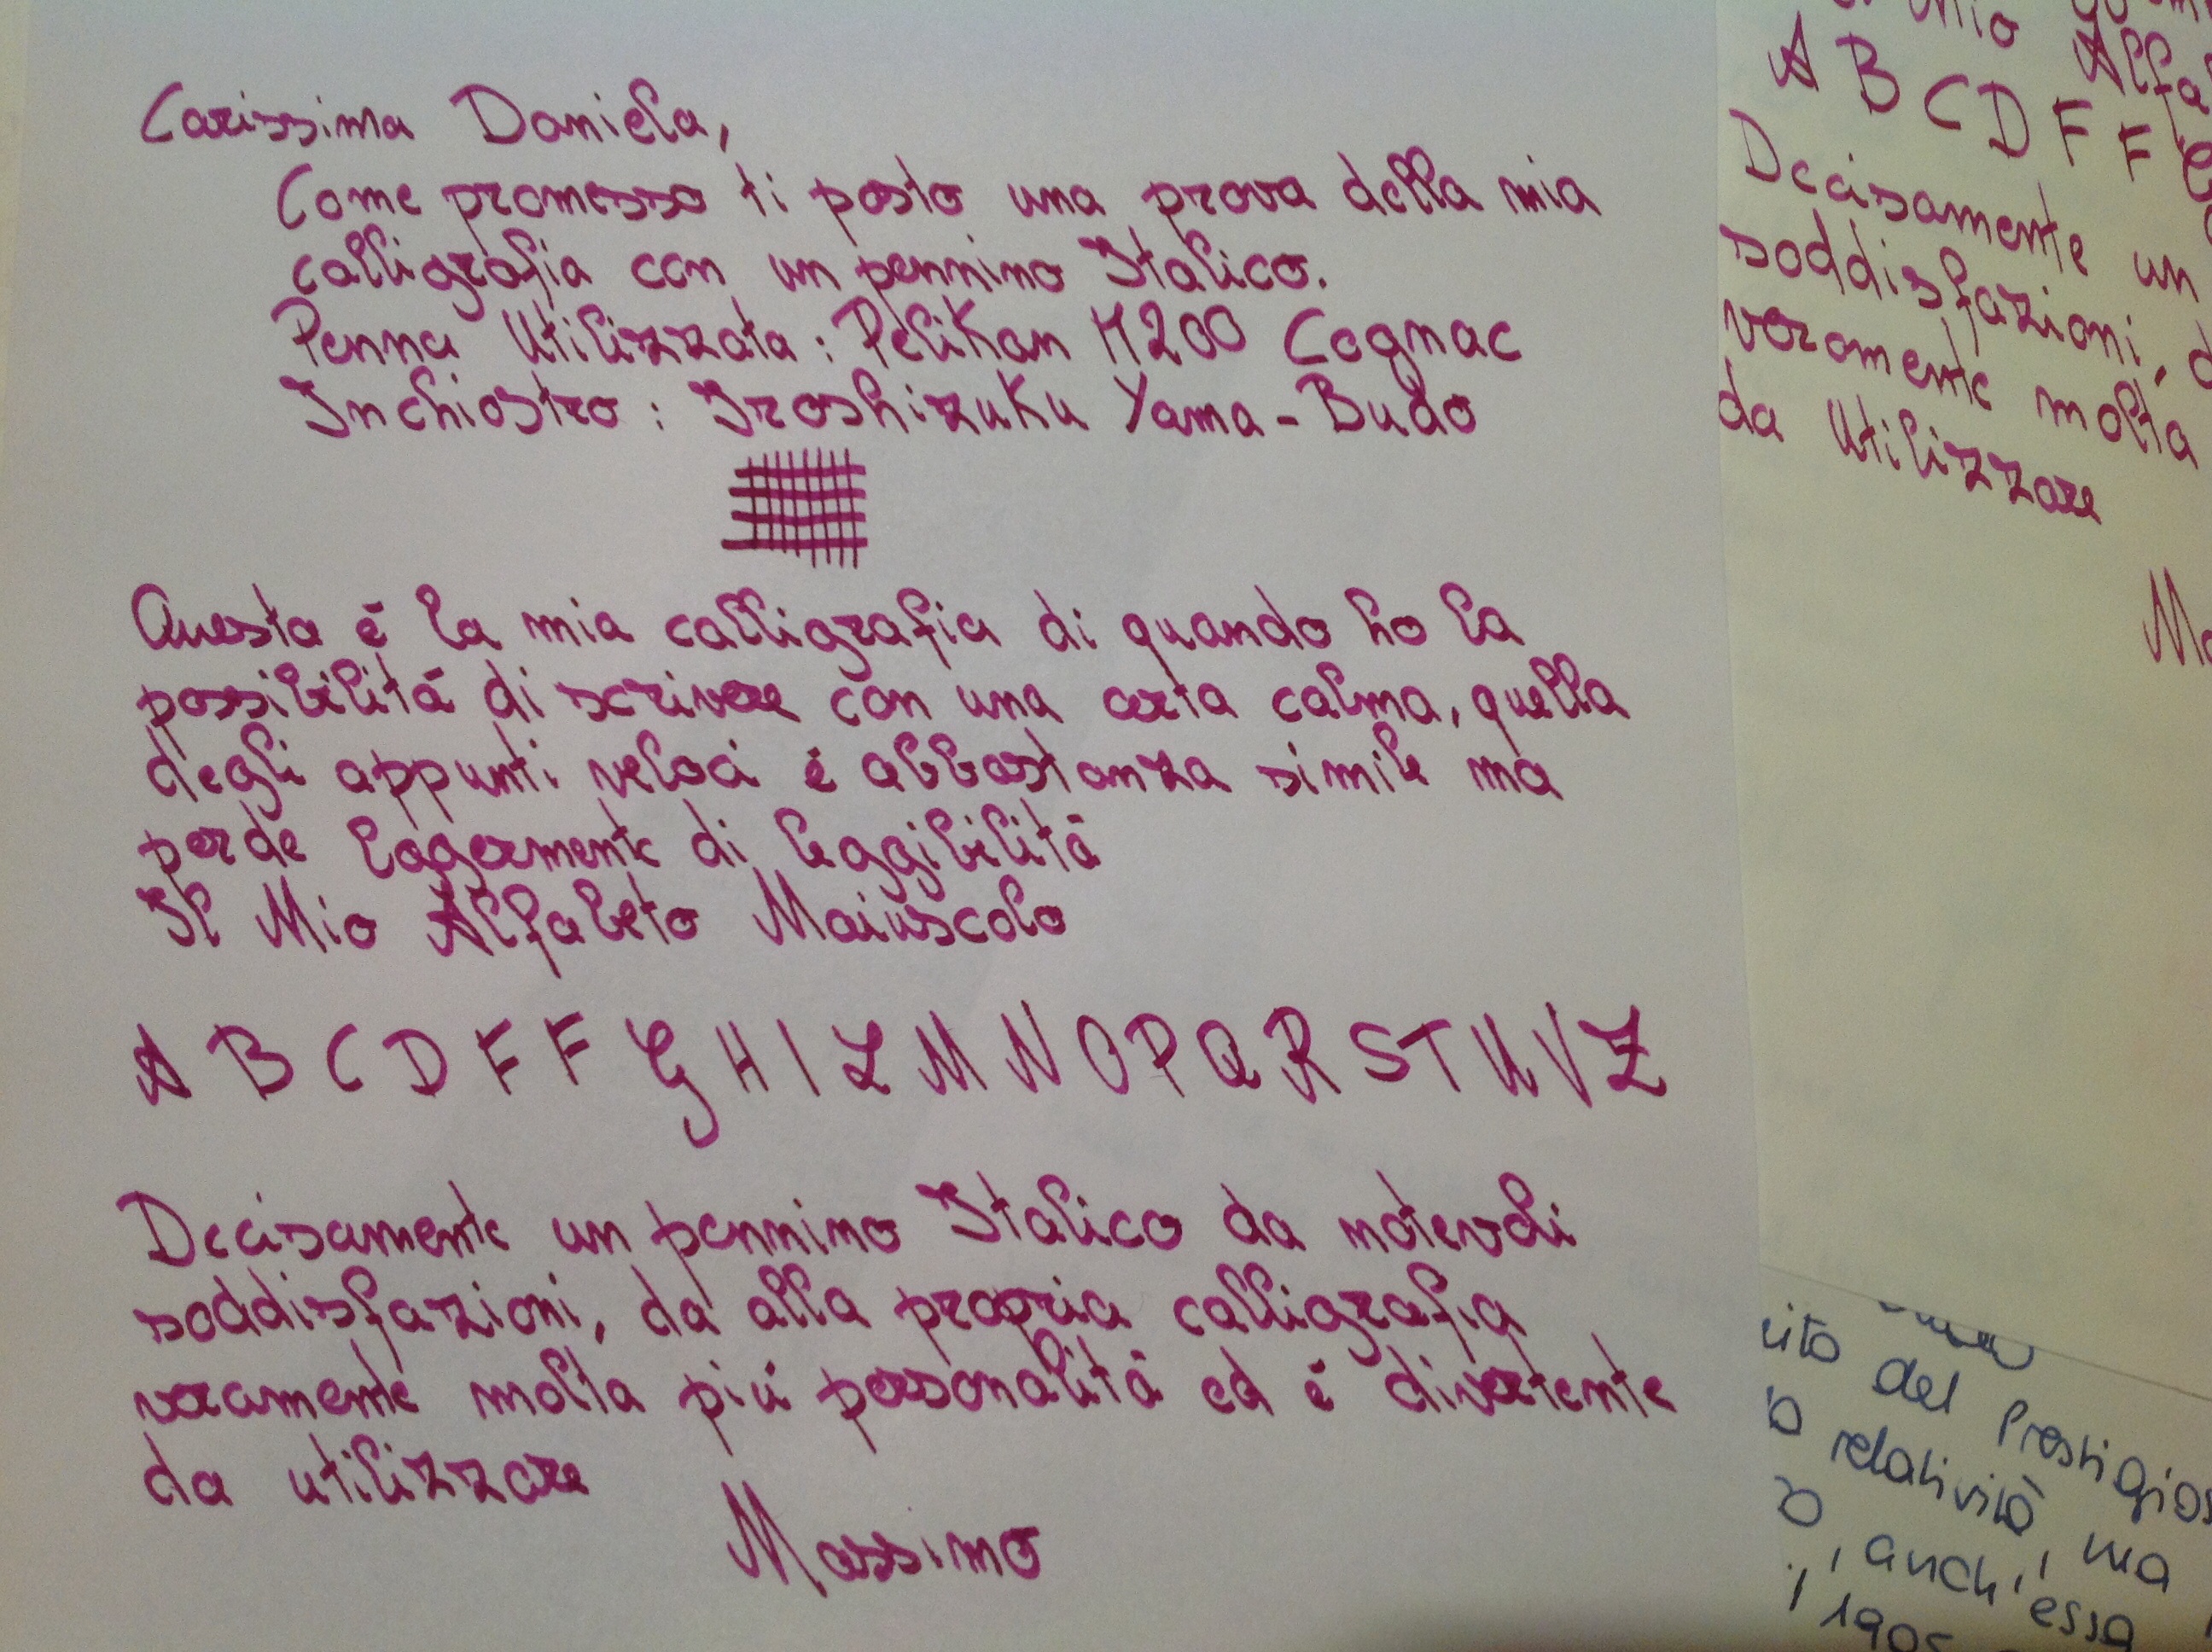 Carissima Daniela,
Come promesso ti posto una prova della mia
calligrafia con un pennino Italico.
Penna Utilizzata: Pelikan M200 Cognac
Inchiostro: Iroshizuku Yama-Budo
Questa é la mia calligrafia di quando ho la
possibilitá di scrivere con una certa calma, quella
degli appunti veloci é abbastanza simile ma
perde legermente di leggibilitá
Il Mio Alfabeto Maiuscolo
A B C D E F G H I L M N O P Q R S T U V Z
Decisamente un pennino Italico da notevoli
soddisfazioni, da' alla propria calligrafia
veramente molta piú personalitá ed é divertente
da utilizzare
Massimo
Mio Alfa
A B C D E F G
Decisamente un
soddisfazioni, d
veramente molta
da Utilizzare
Ma
del Prestigios
relatività, ma
, anch'essa
1905